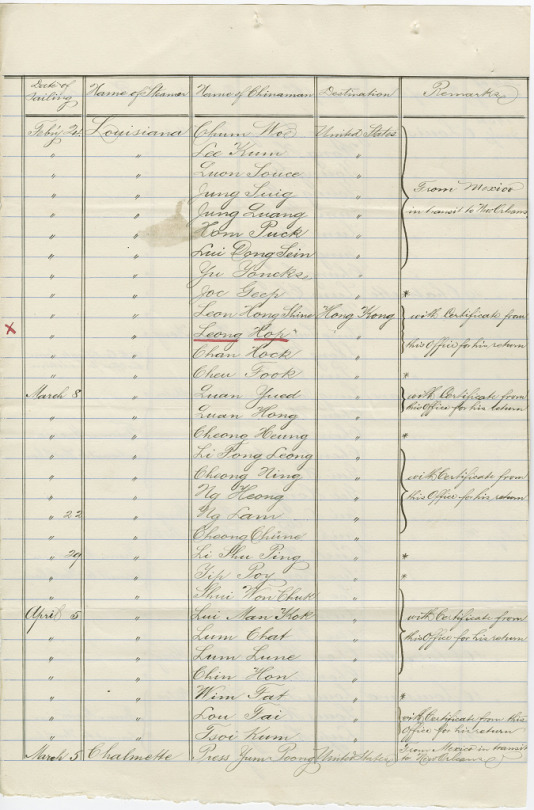 Date of Sailing Name of Steamer Name of Chinaman Destination Remarks
Feby 21 Louisiana Chum Woo United States
" " Lee Kum "
" " Luon Souee "
" " Jung Suig " From Mexico
" " Jung Luang " in transit to New Orleans
" " Hom Puck "
" " Lui Dong Sein "
" " Yu "
" " Joe Geep " *
" " Leon Hong Shine Hong Kong with Certificate from
x " " Leong Hop " this Office for his return
" " Chan Hock "
" " Cheu Fook " *
March 8 " Luan Yued " with Certificate from
" " Luan Hong " this Office for his return
" " Cheong Heung " *
" " Li Pong Leong "
" " Cheong Ning " with Certificate from
" " Ng Heong " this Office for his return
" 22 " Ng Lam "
" " Cheong Chune "
" 29 " Li Shu Ping " *
" " Yip Poy " "
" " Shui Won Chuk "
April 5 " Lui Man Kok " with Certificate from
" " Lum Chat " this Office for his return
" " Lum Lune "
" " Chin Hon "
" " Wim Fat " *
" " Lou Tai " with Certificate from this
" " Tsoi Kum " Office for his return
March 5 Chalmette Press Yum Poong United States From Mexico in transit
to New Orleans